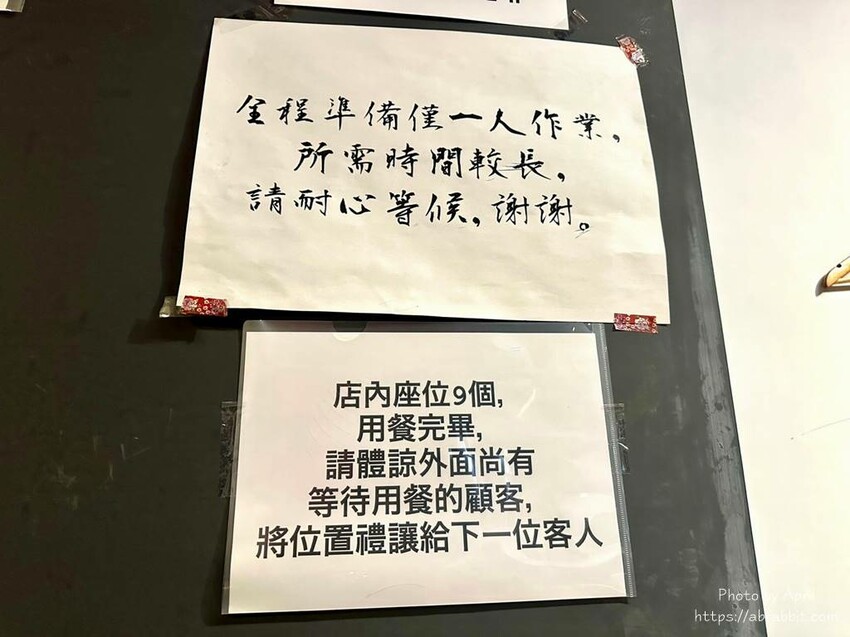 全程準備僅一人作業,
所需時間較長,
請耐心等候,謝謝。
店內座位9個,
用餐完畢,
請體諒外面尚有
等待用餐的顧客,
將位置禮讓給下一位客人
Photo by April
https://abrabbit.com